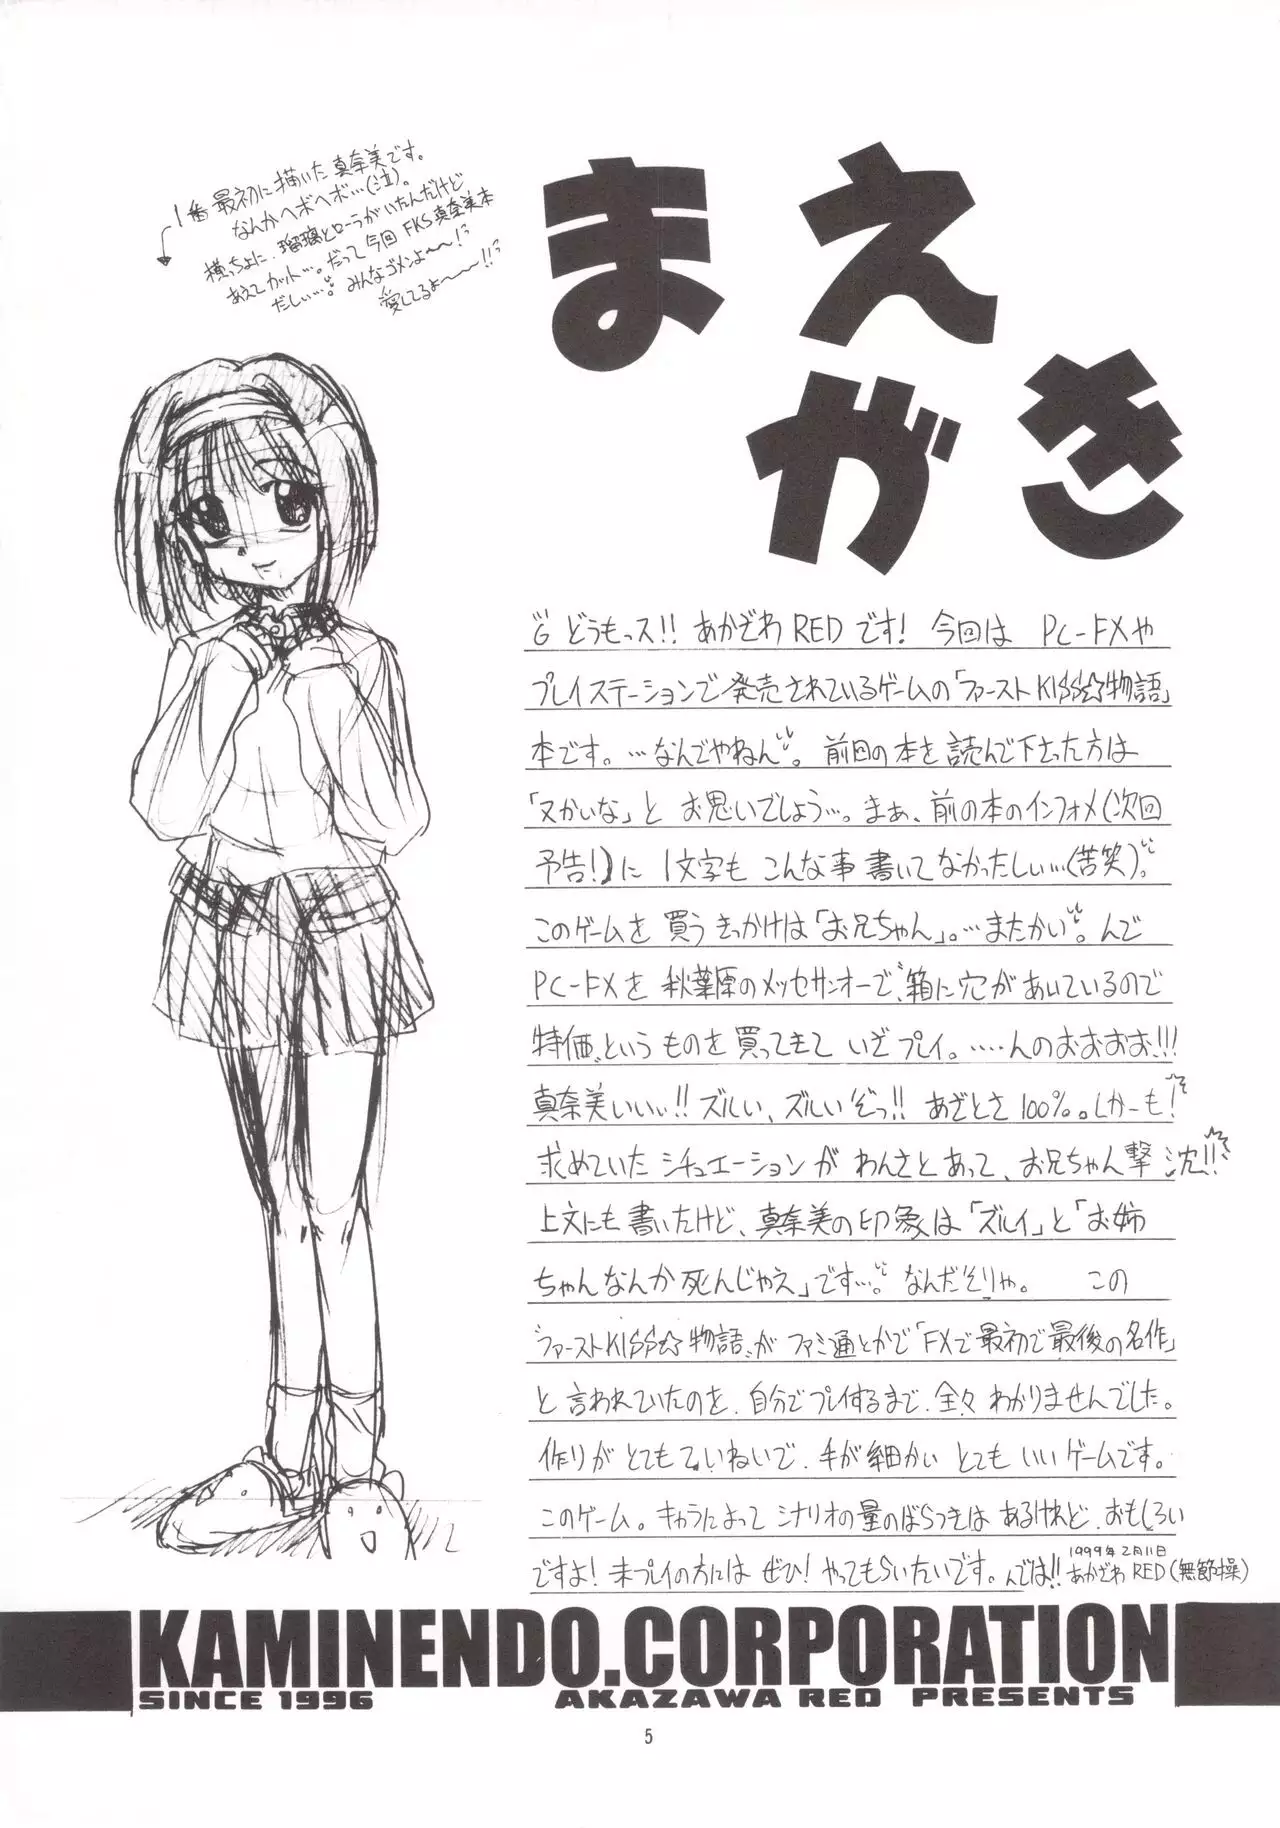 まえがき
1番最初に描いた真奈美です。
なんかヘボヘボ…(泣)。
横っちょに、瑠璃とローラがいたんだけど
あえてカット…。だって今回FKS真奈美本
だしい…。みんなゴメンよ〜〜!
愛してるよ〜〜〜!!
どうもっス!! あかざわREDです! 今回は PC-FXや
プレイステーションで発売されているゲームの「ファーストKISS☆物語」
本です。…なんでやねん。前回の本を読んで下さった方は
「又かいな」と お思いでしょう…。まぁ、前の本のインフォメ(次回
予告!)に 1文字も こんな事書いてなかったしぃ…(苦笑)。
このゲームを 買うきっかけは「お兄ちゃん」。…またかい。んで
PC-FXを 秋葉原のメッセサンオーで〝箱に穴があいているので
特価〟という ものを 買ってきて いざプレイ。……んのおおおお!!!
真奈美いいい!! ズルい、ズルいぞっ!! あざとさ100%。しかーも!
求めていた シチュエーションが わんさとあって、お兄ちゃん撃沈!!
上文にも 書いたけど、真奈美の印象は「ズルイ」と「お姉
ちゃんなんか 死んじゃえ」です…。なんだそりゃ。 この
〝ファーストKISS☆物語〟が ファミ通とかで「FXで最初で最後の名作」
と 言われていたのを、自分でプレイするまで、全々 わかりませんでした。
作りが とても ていねいで、手が細かい とても いいゲームです。
このゲーム。キャラによって シナリオの量のばらつきは あるけれど、おもしろい
ですよ! 未プレイの方には ぜひ! やってもらいたいです。んでは!!
1999年2月11日
あかざわRED(無節操)
KAMINENDO.CORPORATION
SINCE 1996 AKAZAWA RED PRESENTS
5